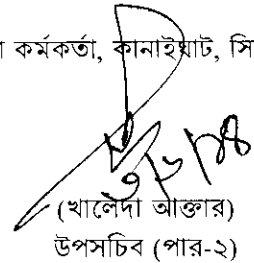 কর্মকর্তা, কানাইঘাট, সি
(খালেদা আক্তার)
উপসচিব (পার-২)